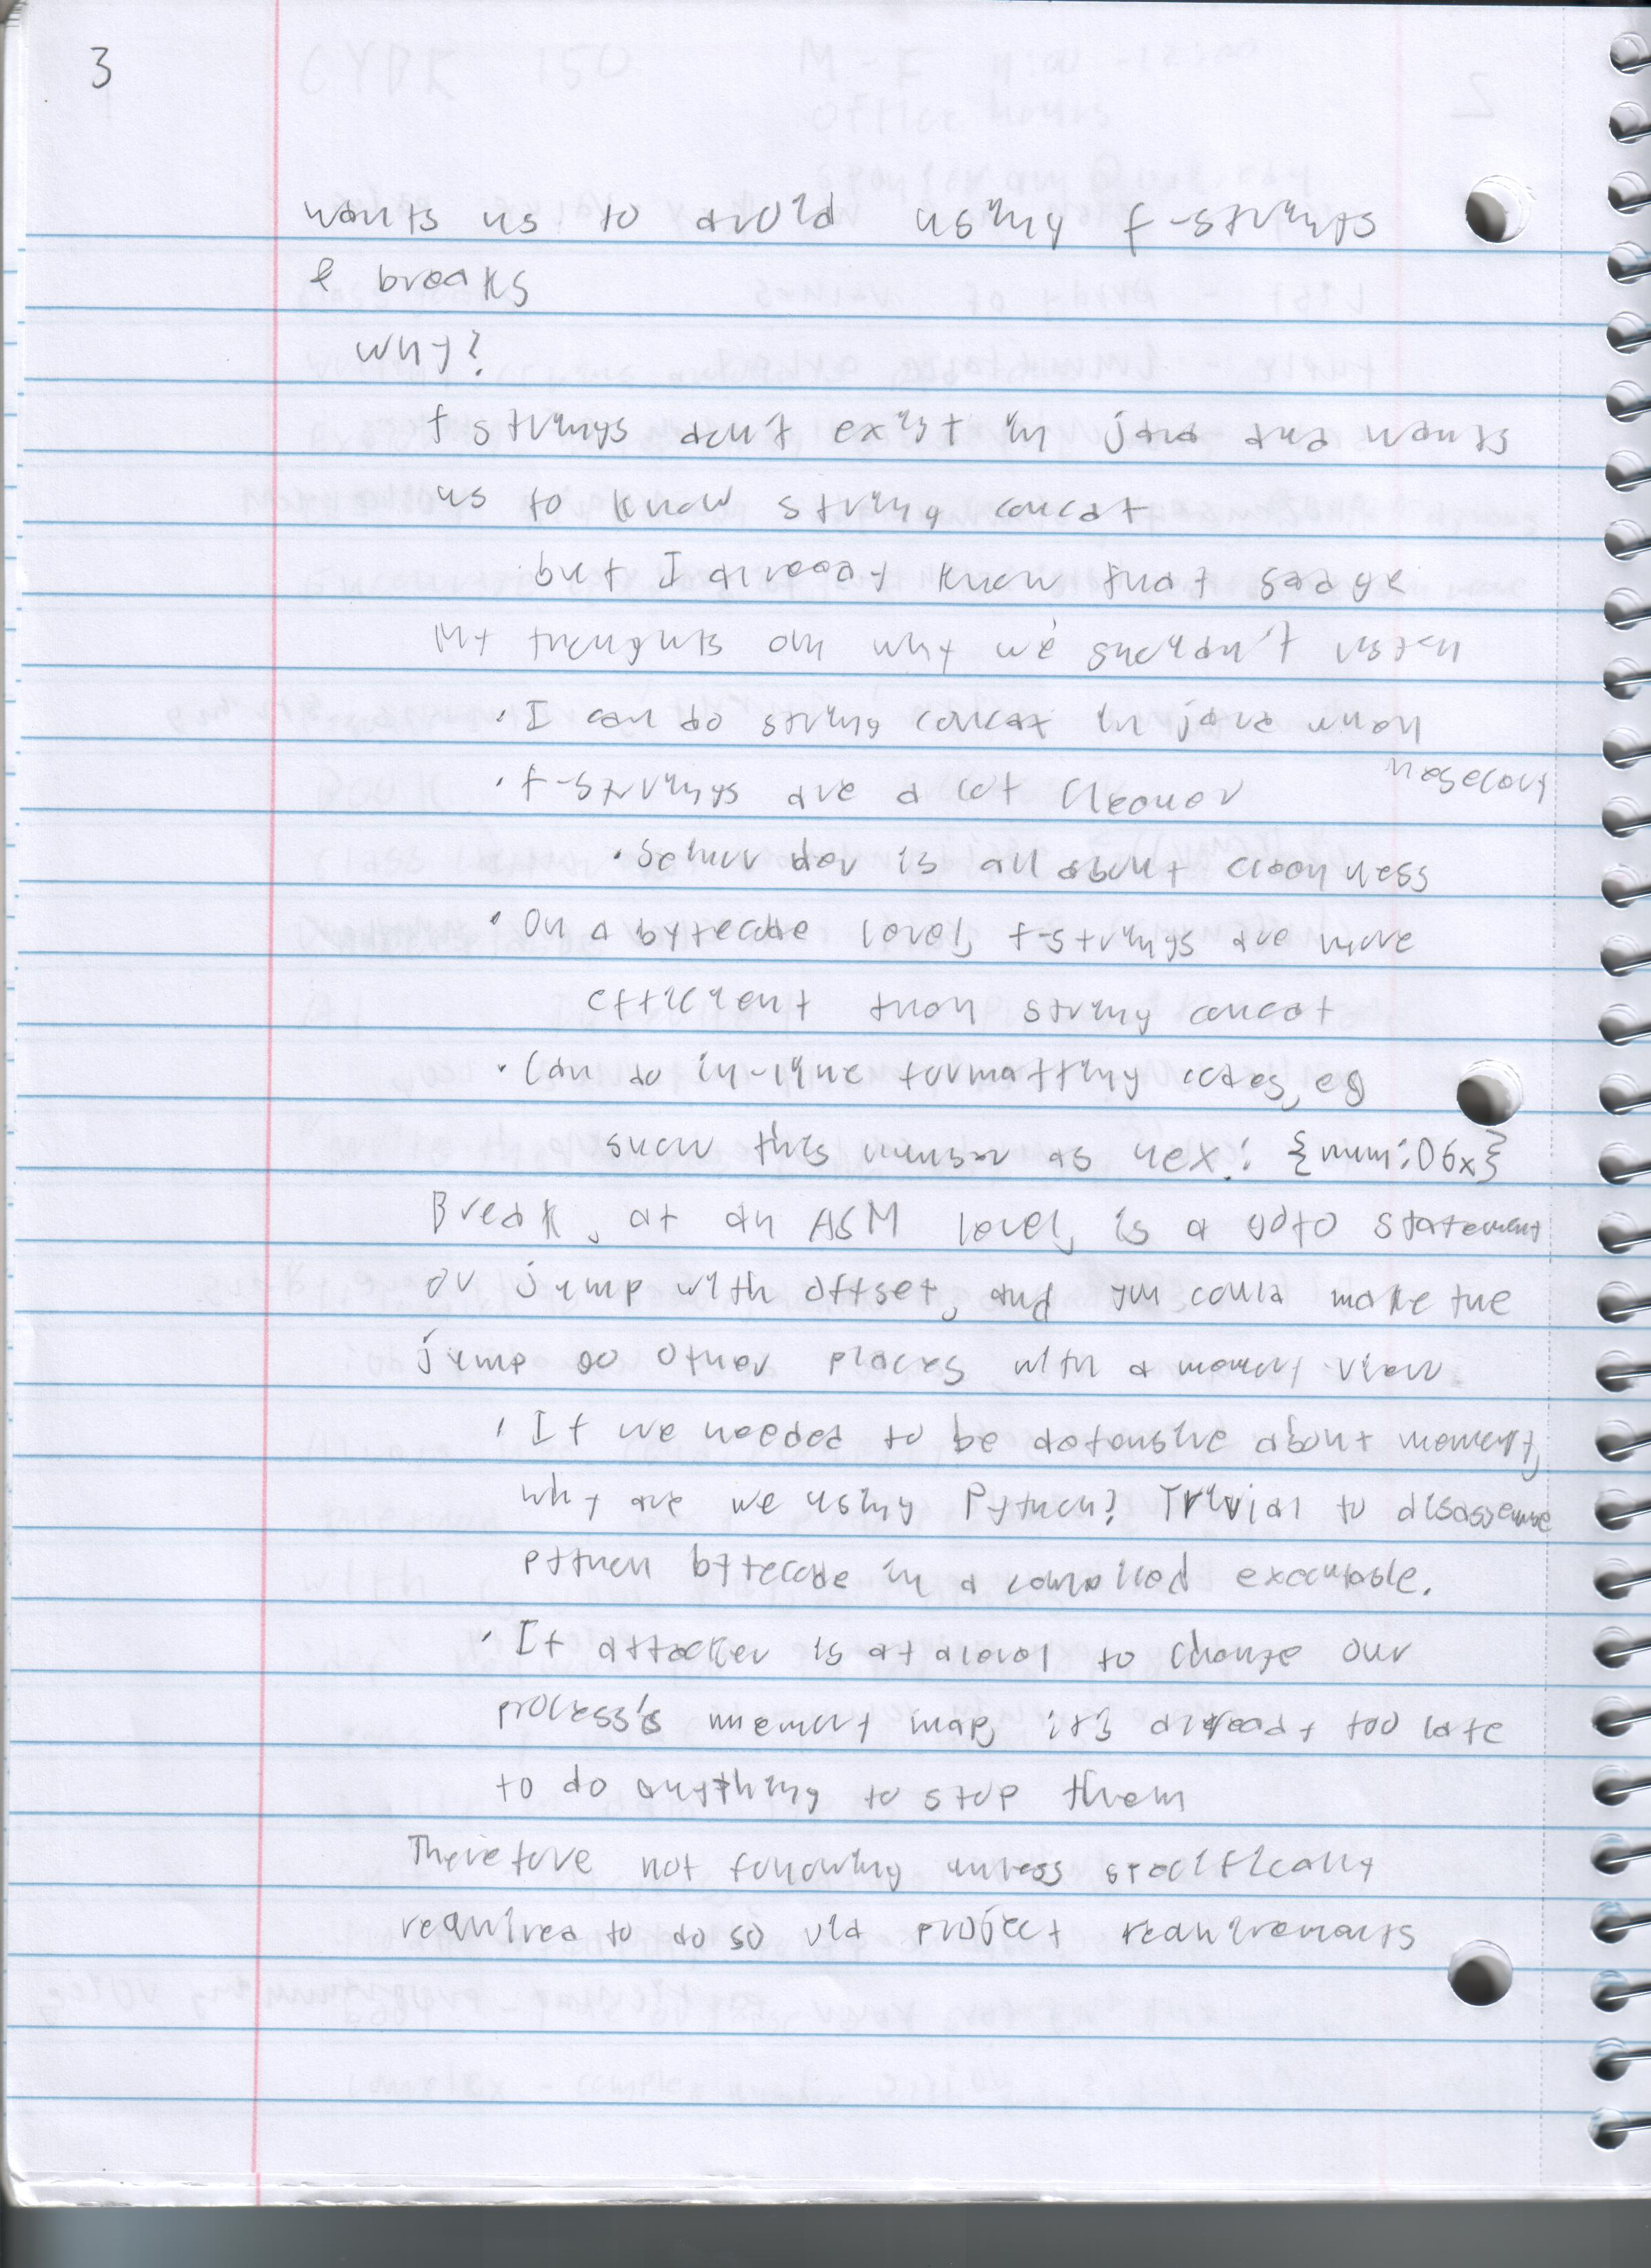 3
wants us to avoid using f-strings
& breaks
why?
f strings don't exist in java and wants
us to know string concat
but I already know that sadge
My thoughts on why we shouldn't listen
· I can do string concat in java when
nesecary
· f-strings are a lot cleaner
· Softwr dev is all about cleanness
· On a bytecode level, f-strings are more
efficient than string concat
· Can do in-line formatting codes, eg
show this number as hex: {num:06x}
Break, at an ASM level, is a goto statement
or jump with offset, and you could make the
jump go other places with a memory view.
· If we needed to be defensive about memory,
why are we using Python? Trivial to disassemble
python bytecode in a compiled executable.
· If attacker is at a level to change our
process's memory map, it's already too late
to do anything to stop them
Therefore not following unless specifically
required to do so via project requirements